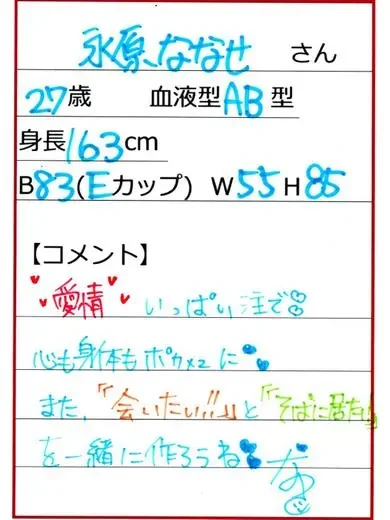 永原ななせ さん
27歳 血液型AB型
身長163cm
B83(Eカップ) W55 H85
【コメント】
愛情 いっぱい注で
心も身体もポカ×2に
また、「会いたい!!」と「そばに居たい」
を一緒に作ろうね